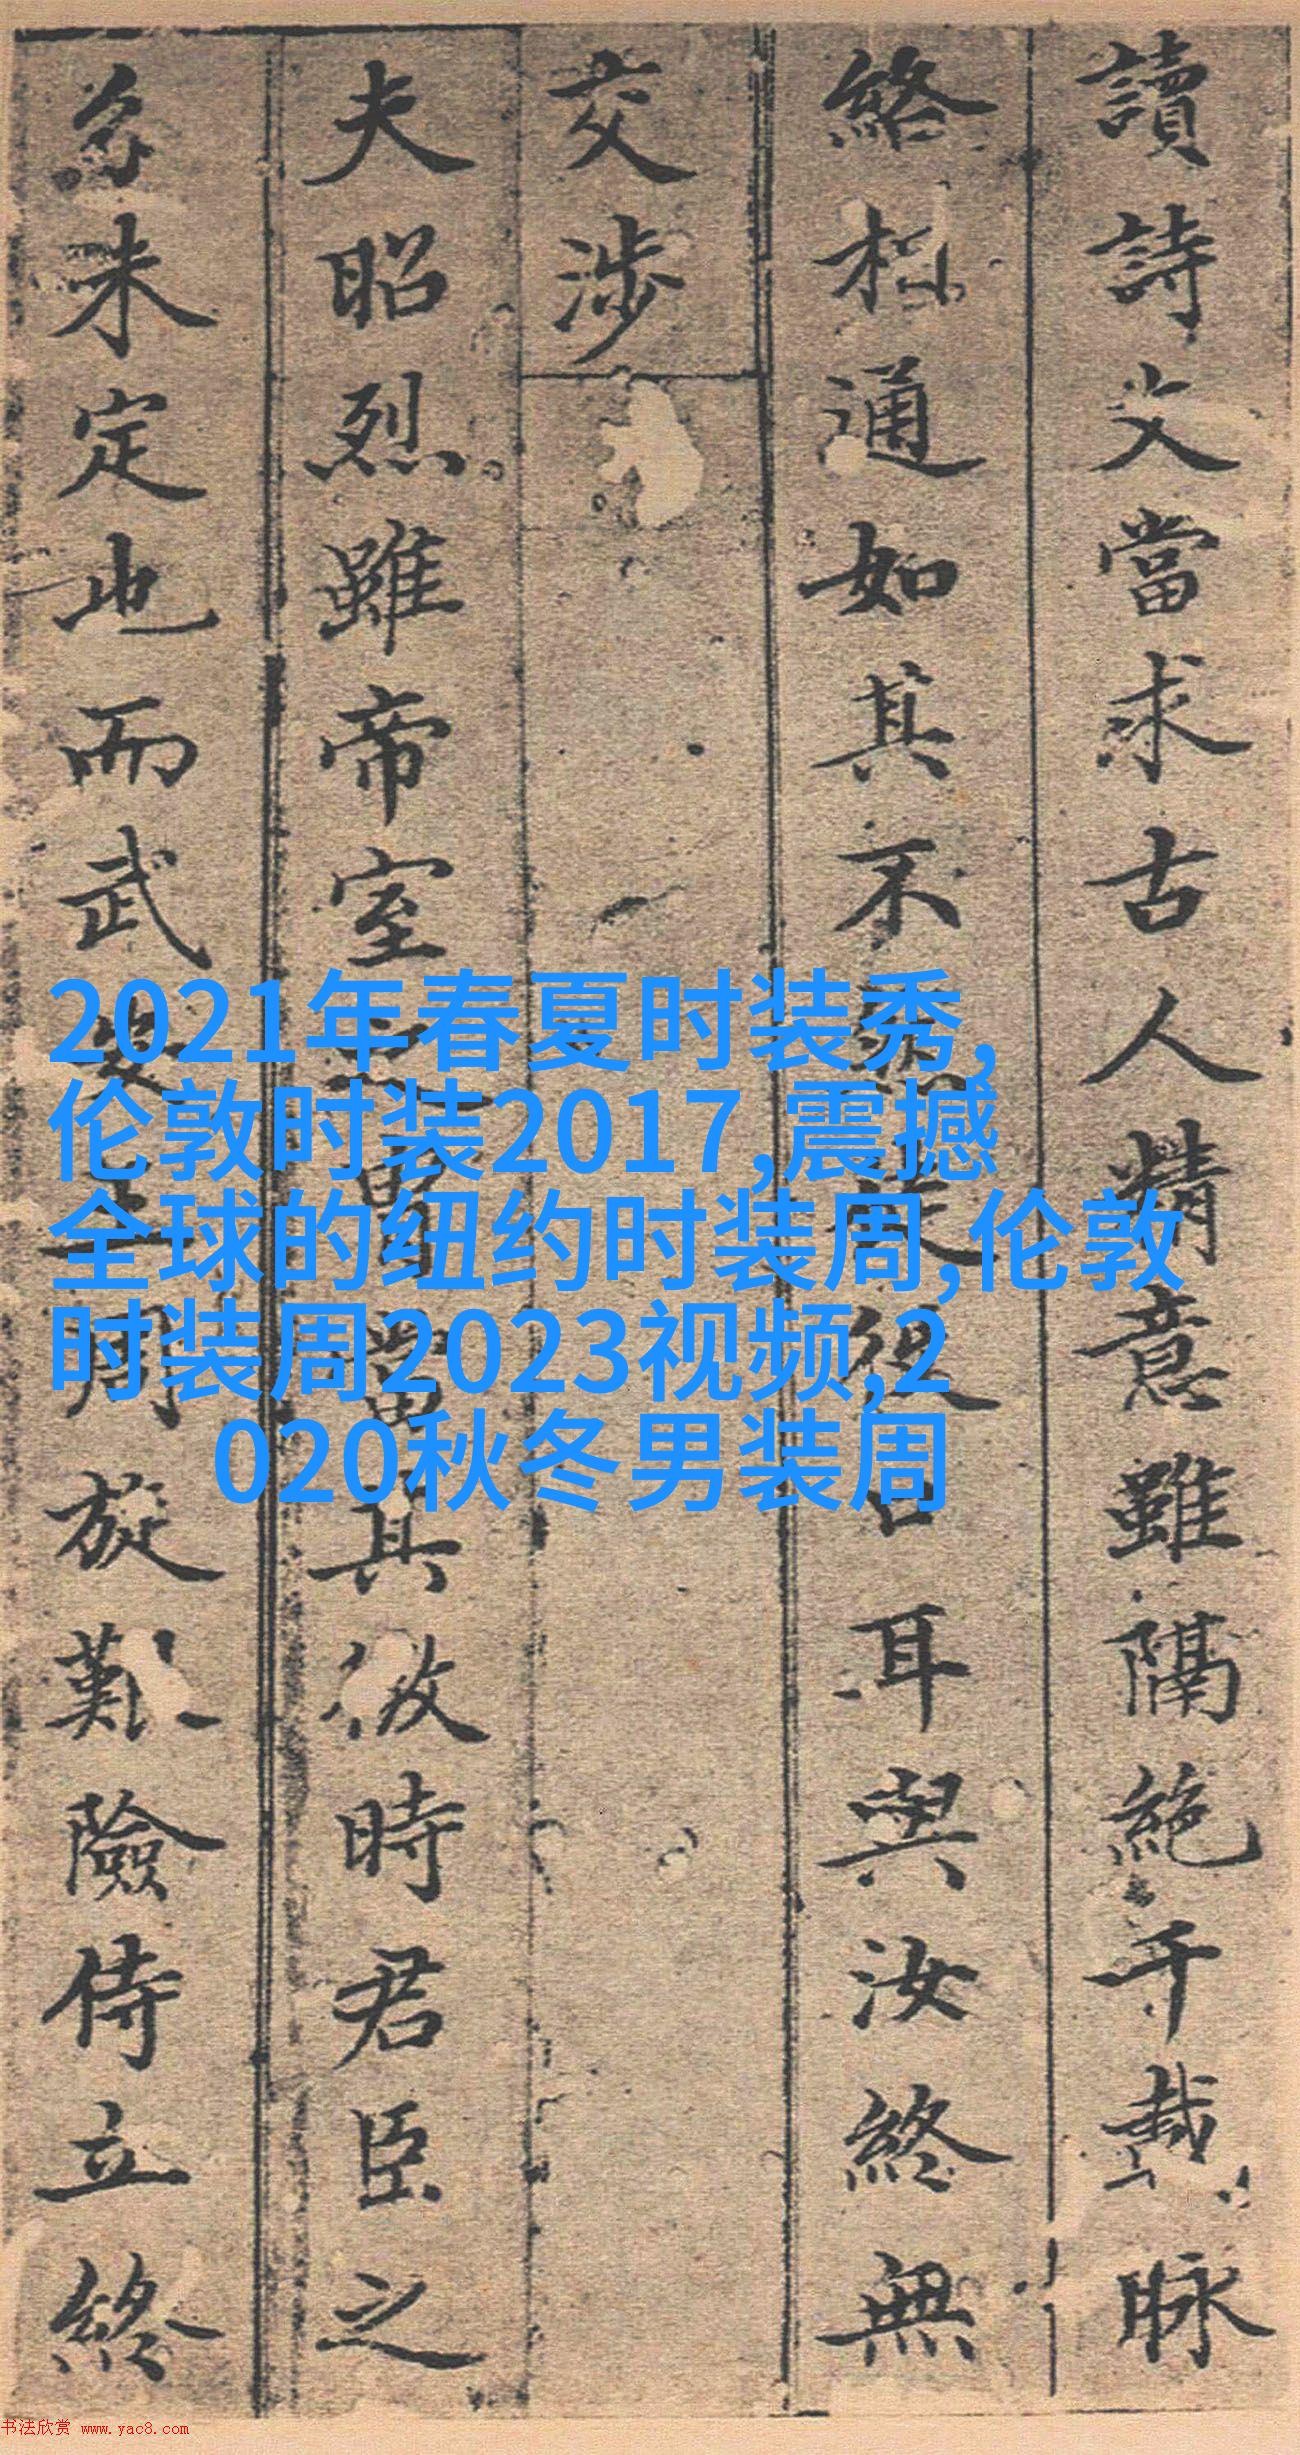 讀詩文當求古人精意雖隔絶千載脉
絡相通如其不徒從口耳與汝終無
交涉
夫昭烈雖帝室之冑當其微時君臣之
分未定也而武安王周旋艱險侍立終
2021年春夏时装秀,
伦敦时装2017,震撼
全球的纽约时装周,伦敦
时装周2023视频,2
020秋冬男装周
书法欣赏 www.yac8.com